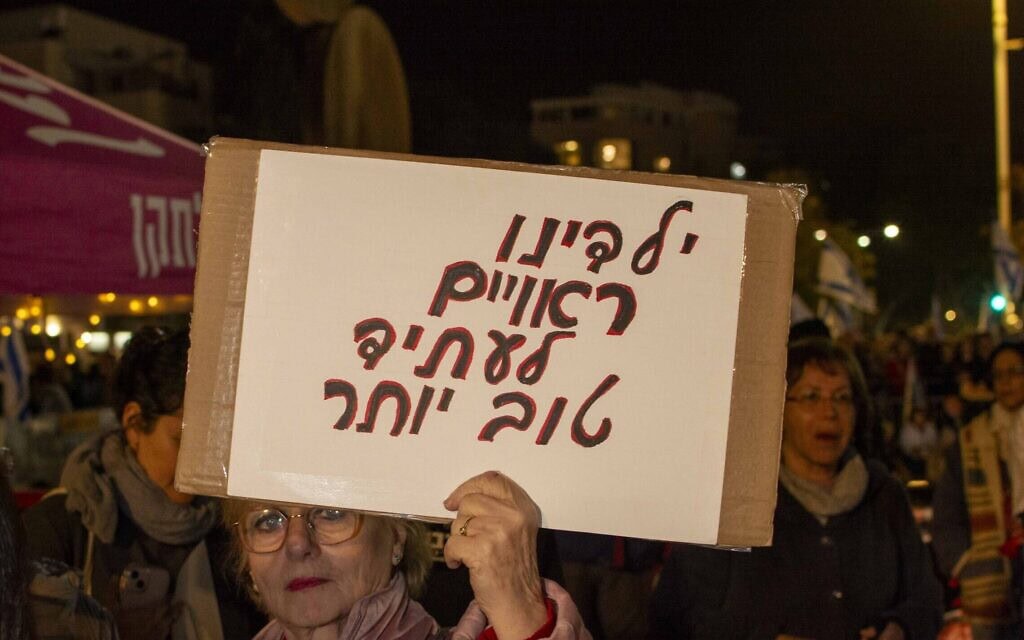 ילדינו
ראויים
לעתיד
טוב יותר